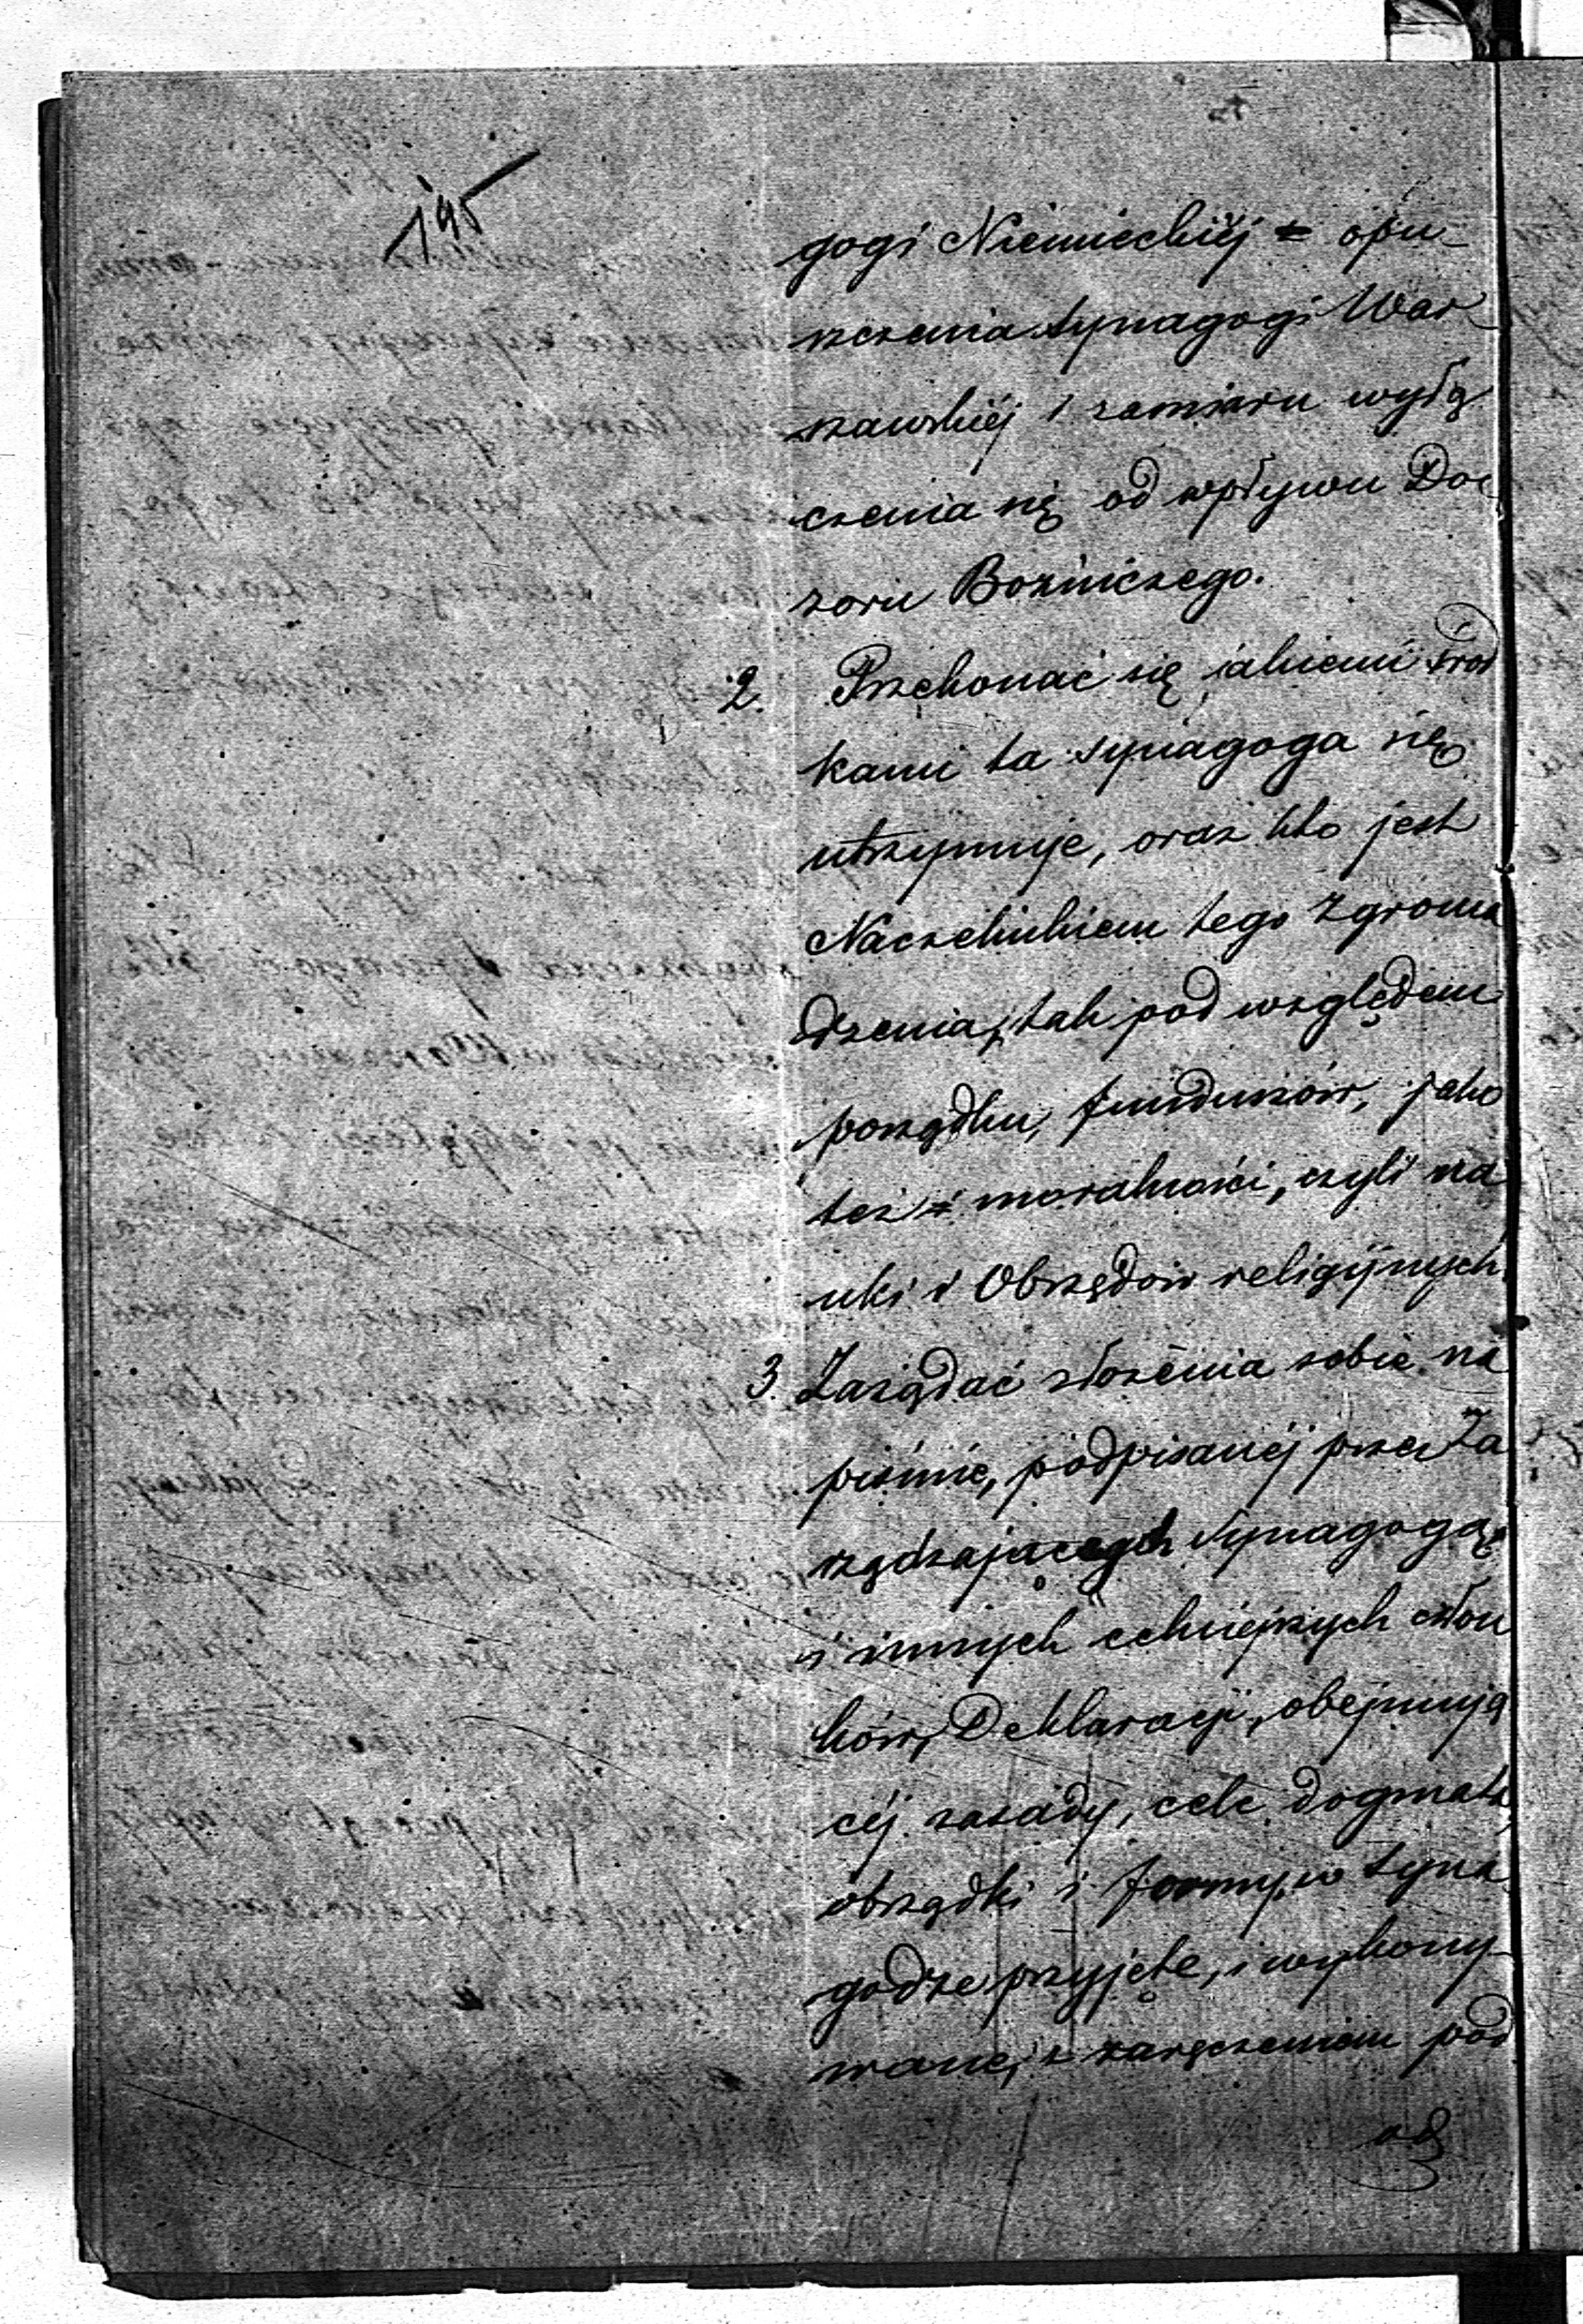 195
gogi Niemieckiéj z opu-
szczenia Synagogi War
szawskiéj i zamiaru wyłą
czenia się od wpływu Do-
zoru Bożniczego.
2. Przekonać się jakiemi środ
kami ta synagoga się
utrzymuje, oraz kto jest
Naczelnikiem tego Zgroma
dzenia, tak pod względem
porządku, funduszów, jako
też i moralności, czyli na
uki i Obrzędów religijnych.
3. Zażądać złożenia sobie na
piśmie, podpisanéj przez Za
rządzających Synagogą
i innych celniejszych człon
ków, Deklaracji, obejmują
céj zasady, cele dogmata,
obrządki i formy, w Syna
godze przyjęte, i wykony-
wane, z zaręczeniem pod